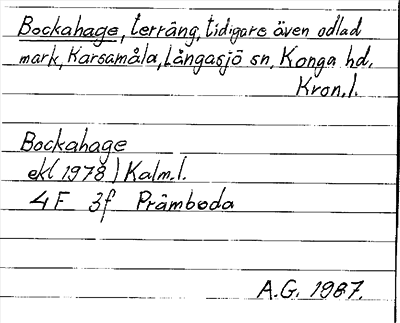 Bockahage, terräng, tidigare även odlad
mark, Karsamåla, Långasjö sn, Konga hd,
Kron.l.
Bockahage
ekl 1978 ) Kalm.l.
4F 3f Pråmboda
A.G. 1987.